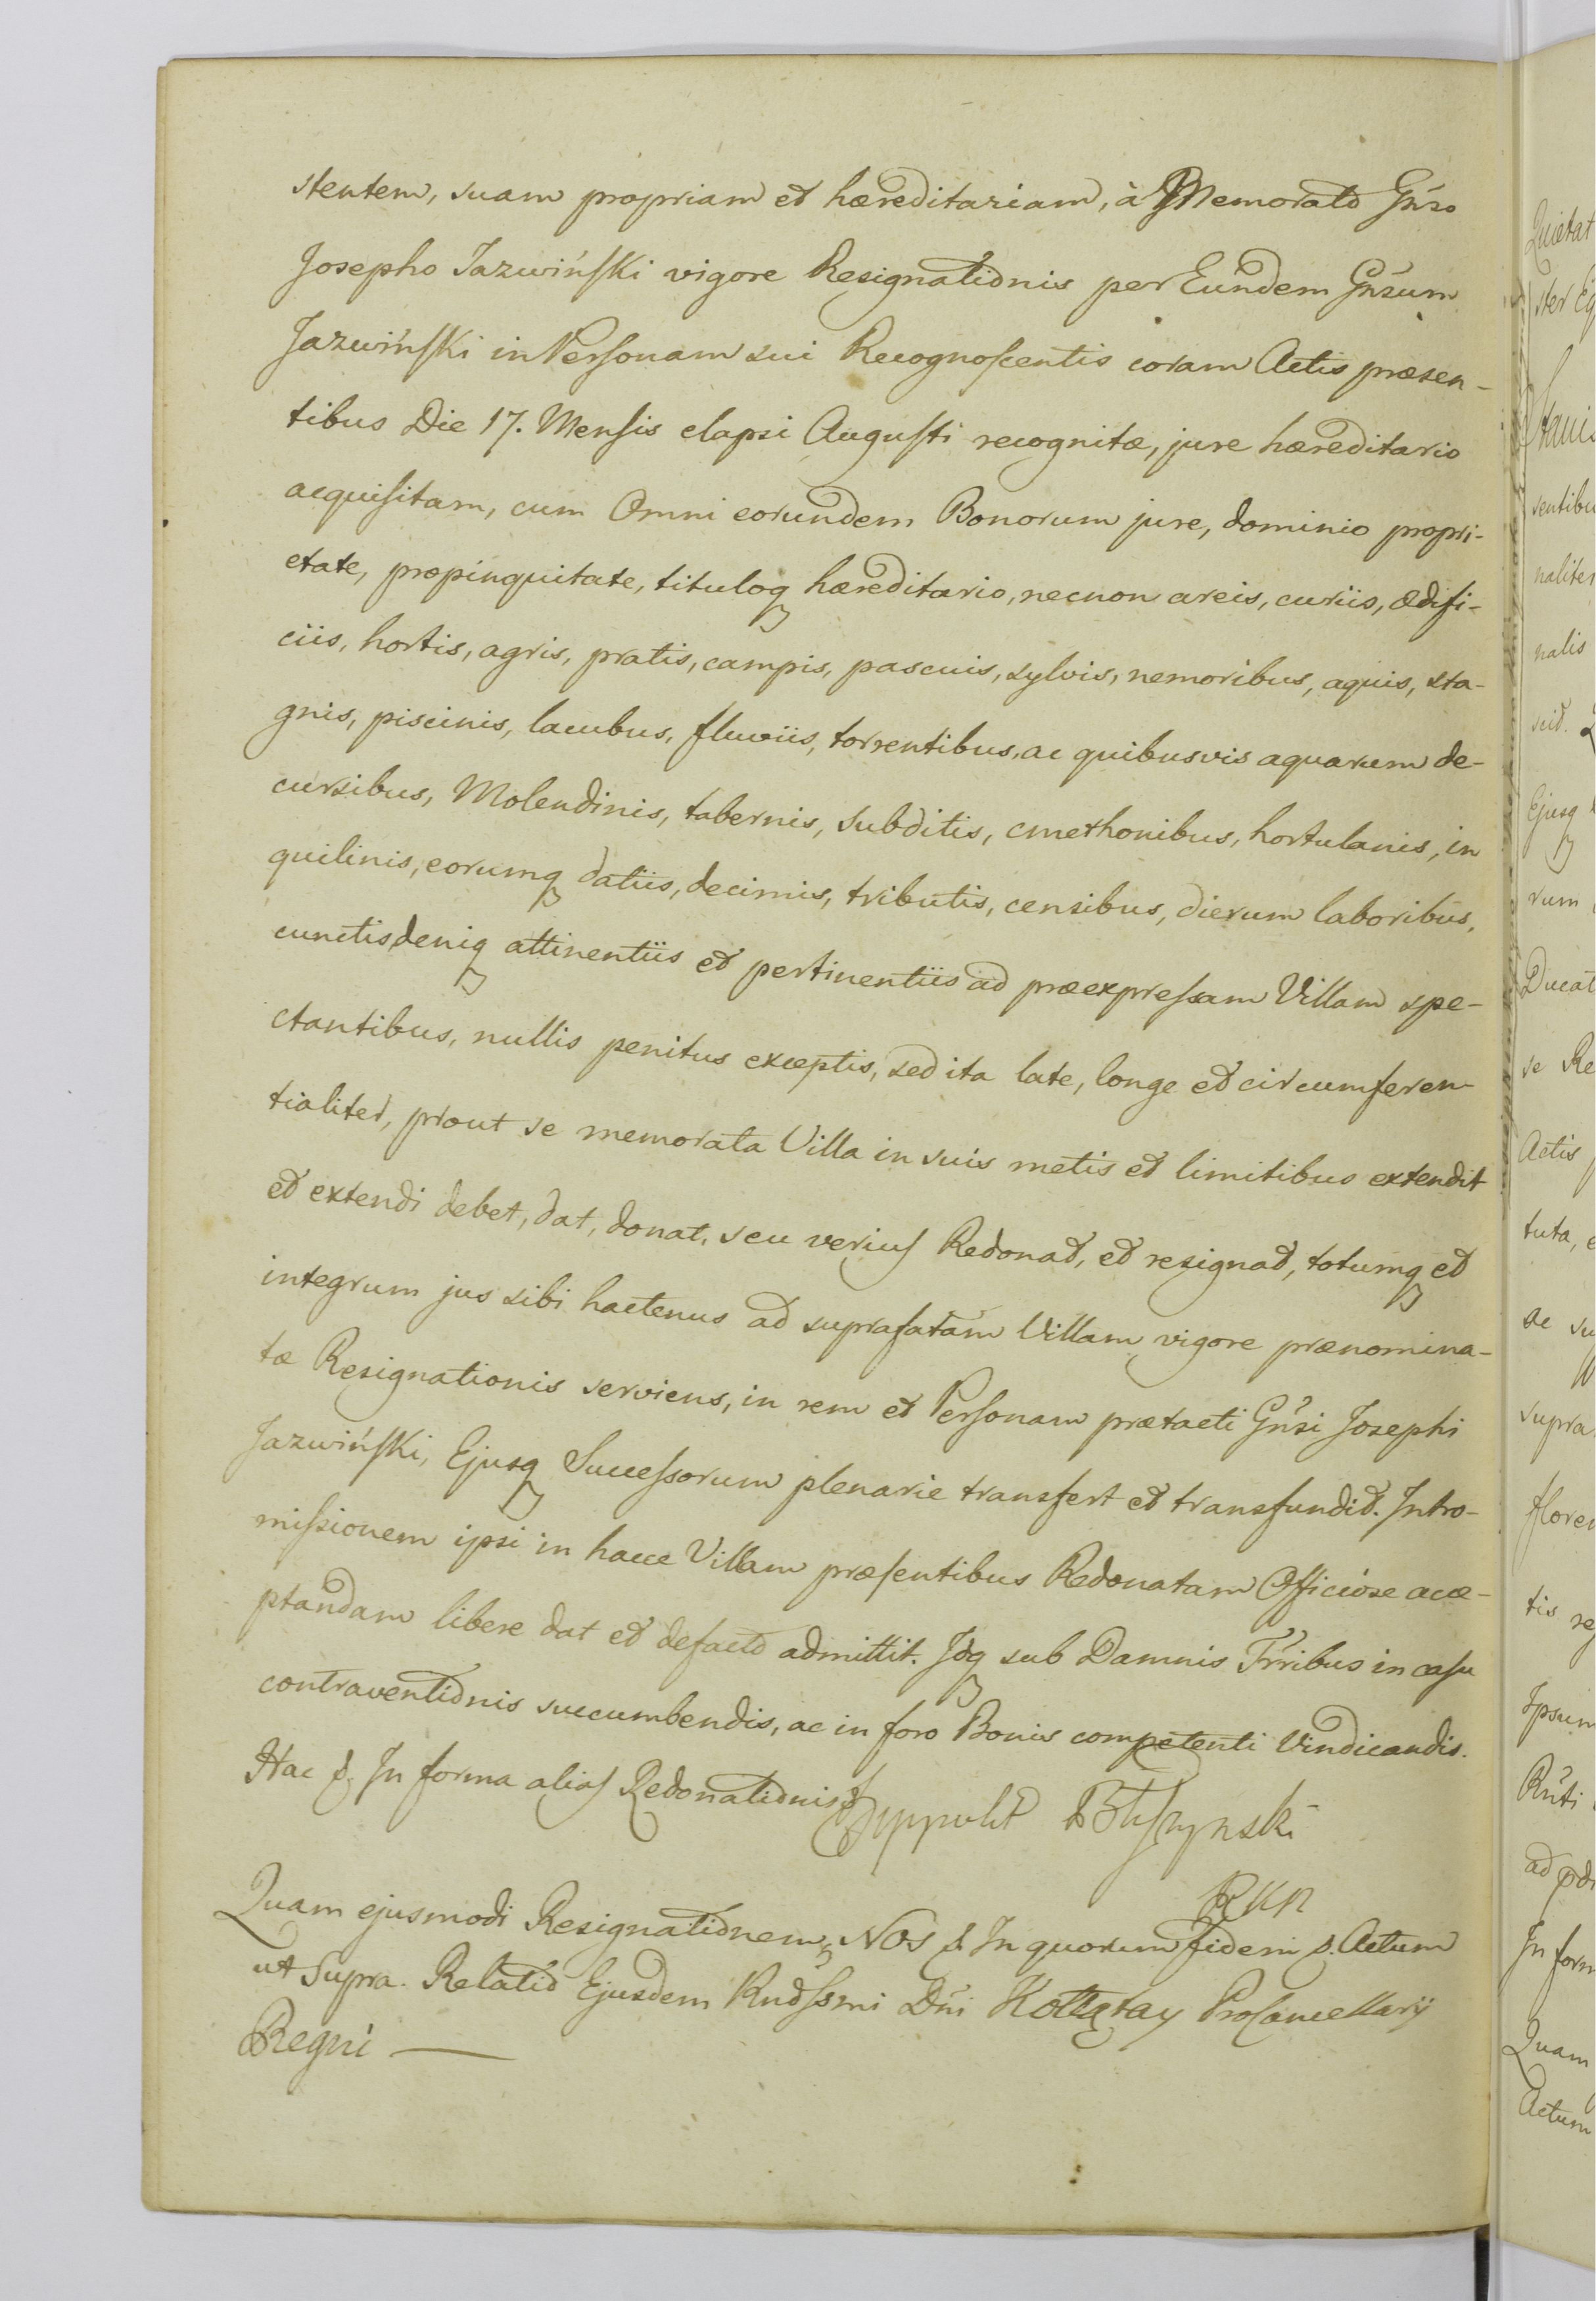 stentem, suam propriam et hæreditariam, à Memorato Gnso
Josepho Jazwińſki vigore Resignationis per Eundem Gnsum
Jazwińſki in Perſonam sui Recognoſcentis coram Actis præsen-
tibus Die 17. Menſis elapsi Auguſti recognitæ, jure hæreditario
acquiſitam, cum Omni eorundem Bonorum jure, dominio propri-
etate, propinquitate, tituloq hæreditario, necnon areis, curiis, ædifi-
ciis, hortis, agris, pratis, campis, pascuis, sylvis, nemoribus, aquis, sta-
gnis, piscinis, lacubus, fluviis, torrentibus, ac quibusvis aquarum de-
cursibus, Molendinis, tabernis, Subditis, cmethonibus, hortulanis, in
quilinis, eorumq datiis, decimis, tributis, censibus, dierum laboribus,
cunctis deniq attinentiis et pertinentiis ad præexpreſsam Villam spe-
ctantibus, nullis penitus exceptis, sed ita late, longe et circumferen-
tialiter, prout se memorata Villa in suis metis et limitibus extendit
et extendi debet, dat, donat, seu veriuſ Redonat, et resignat, totumq et
integrum jus sibi hactenus ad suprafatam Villam vigore prænomina-
tæ Resignationis serviens, in rem et Perſonam prætacti Gnsi Josephi
Jazwińſki, Ejusq Succeſsorum plenarie transfert et transfundit. Intro-
miſsionem ipsi in hacce Villam præſentibus Redonatam Officiose acce-
ptandam libere dat et defacto admittit. Idq sub Damnis Trribus in casu
contraventionis succumbendis, ac in foro Bonis competenti Vindicandis.
Hac &. In forma aliaſ Redonationis &
Hyppolit
RKR
Quam ejusmodi Resignationem, Nos &. In quorum fidem &. Actum
ut Supra. Relatio Ejusdem Rndſsmi Dni Kołłątay ProCancellarij
Regni —